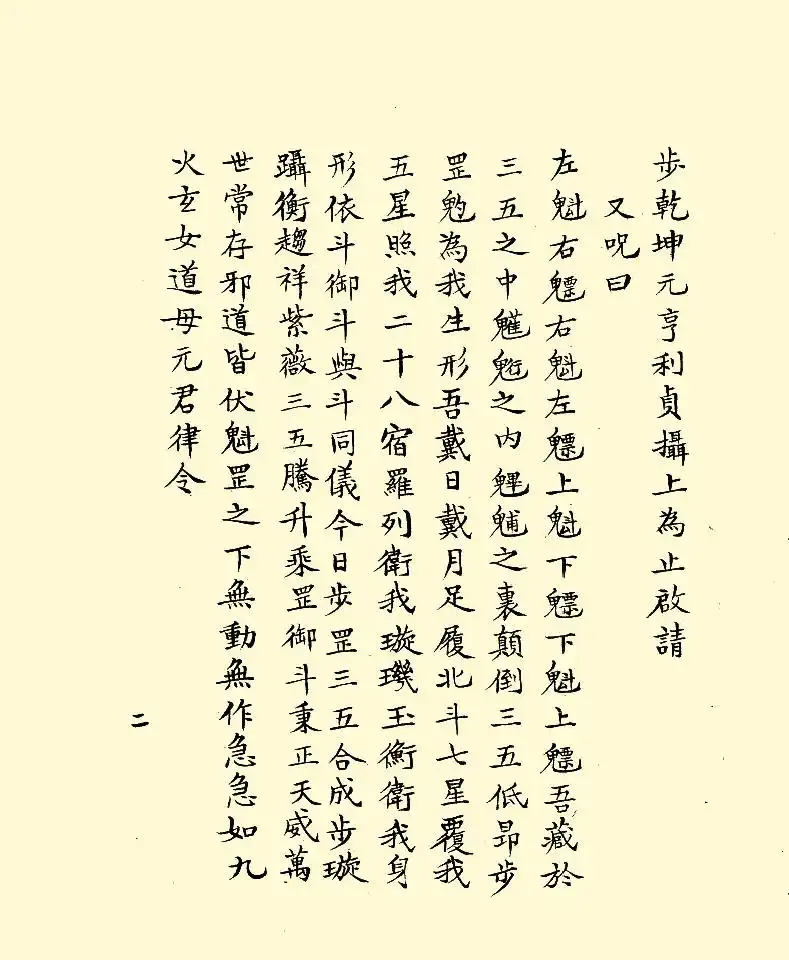 步乾坤元亨利貞攝上為止啟請
又呪曰
左魁右魒右魁左魒上魁下魒下魁上魒吾藏於
三五之中䰢魁之內魓魒之裏顛倒三五低昂步
罡魁為我生形吾戴日戴月足履北斗七星覆我
五星照我二十八宿羅列衛我璇璣玉衡衛我身
形依斗御斗與斗同儀今日步罡三五合成步璇
躡衡趨祥紫薇三五騰升乘罡御斗秉正天威萬
世常存邪道皆伏魁罡之下無動無作急急如九
火玄女道母元君律令
二